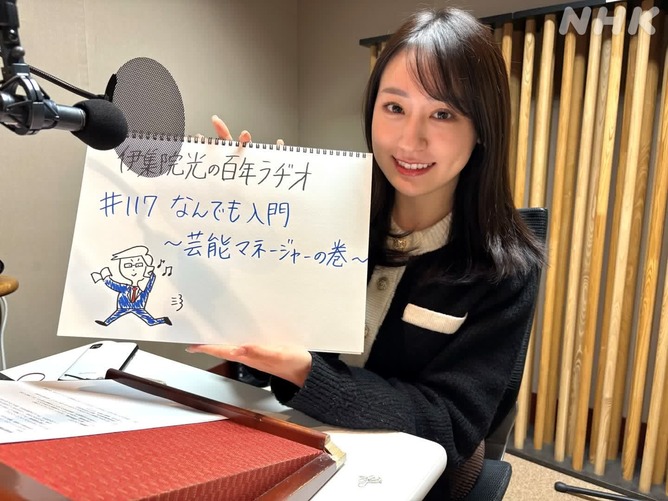 NHK
伊集院光の百年ラヂオ
#117 なんでも入門
～芸能マネージャーの巻～